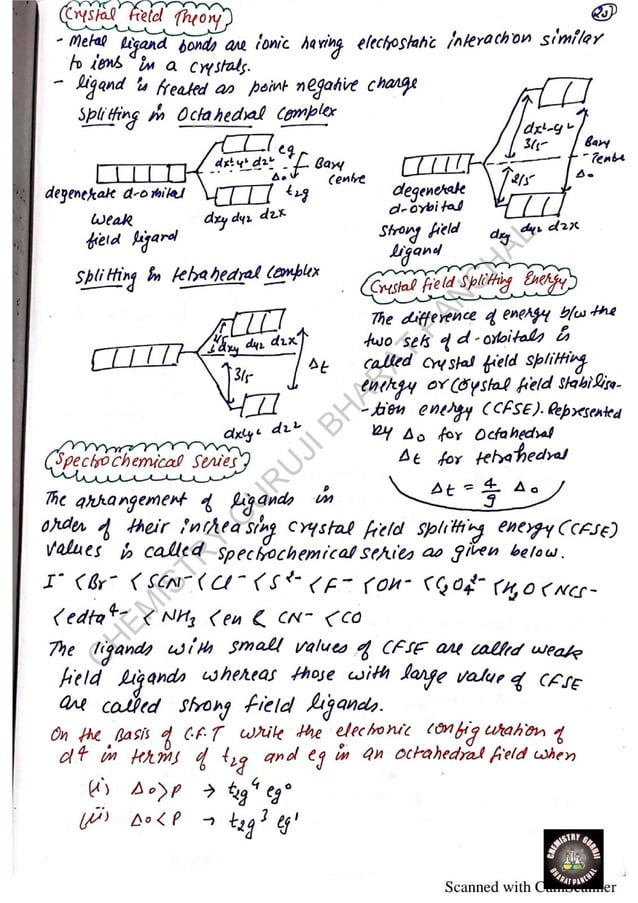 Crystal Field Theory
20
- Metal ligand bonds are ionic having electrostatic interaction similar
to ions in a crystals.
- ligand is treated as point negative charge
Splitting in Octahedral complex
eg
dx²-y² dz²
Bary
centre
Δo
t₂g
degenerate d-orbital
dxy dyz dzx
Weak
field ligand
dx²-y²
3/5
Bary
centre
Δo
2/5
degenerate
d-orbital
strong field
ligand
dxy dyz dzx
Splitting in tetrahedral complex
dxy dyz dzx
3/5
Δt
dx²y² dz²
Crystal field Splitting Energy
The difference of energy b/w the
two sets of d-orbitals is
called crystal field splitting
energy or crystal field stabilisa-
-tion energy (CFSE). Represented
by Δo for Octahedral
Δt for tetrahedral
Δt = 4/9 Δo
Spectrochemical Series
The arrangement of ligands in
order of their increasing crystal field splitting energy (CFSE)
values is called spectrochemical series as given below.
I⁻ < Br⁻ < SCN⁻ < Cl⁻ < S²⁻ < F⁻ < OH⁻ < C₂O₄²⁻ < H₂O < NCS⁻
< edta⁴⁻ < NH₃ < en < CN⁻ < CO
The ligands with small values of CFSE are called weak
field ligands whereas those with large value of CFSE
are called strong field ligands.
On the Basis of C.F.T write the electronic configuration of
d⁴ in terms of t₂g and eg in an octahedral field when
(i) Δo>P → t₂g⁴ eg⁰
(ii) Δo<P → t₂g³ eg¹
CHEMISTRY GURUJI BHARAT PANCHAL
CHEMISTRY GURUJI
BHARAT PANCHAL
Scanned with CamScanner